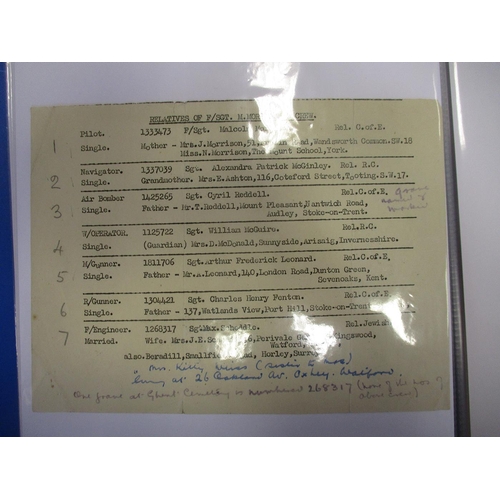 RELATIVES OF F/SGT. M. CREW.
1 Pilot. 1333473 F/Sgt. Malcolm Rel. C.of.E.
Single. Mother - Mrs.J.Morrison, Wandsworth Common.SW.18
Miss.N.Morrison, The Mount School,York.
2 Navigator. 1337039 Sgt. Alexandra Patrick McGinley. Rel. R.C.
Single. Grandmother. Mrs.E.Ashton,116,Coteford Street,Tooting.S.W.17.
3 Air Bomber 1425265 Sgt. Cyril Reddell. Rel.C.of.E,
Single. Father - Mr.T.Reddell,Mount Pleasant, Road,
Audley, Stoke-on-Trent.
4 W/OPERATOR. 1125722 Sgt. William McGuire. Rel.R.C.
Single. (Guardian) Mrs.D.McDonald, Sunnyside,Arisaig, Invernesshire.
5 M/Gunner. 1811706 Sgt.Arthur Frederick Leonard. Rel.C.of E,
Single. Father - Mr.A.Leonard,140,London Road,Dunton Green,
Sevenoaks, Kent.
6 R/Gunner. 1304421 Sgt. Charles Henry Fenton. Rel.C.of.E.
Single. Father - 137,Watlands View,Port Hill,Stoke-on-Trent.
7 F/Engineer. 1268317 Sgt.Max. Rel.Jewish
Married. Wife. Mrs.J.E. Perivale
Watford,
also.Beradill, Road, Horley,Surrey.
" Mrs. Kitty
living at 26 Oakland Av. Oxhey. Watford.
One grave at Ghent Cemetery is numbered 268317 (